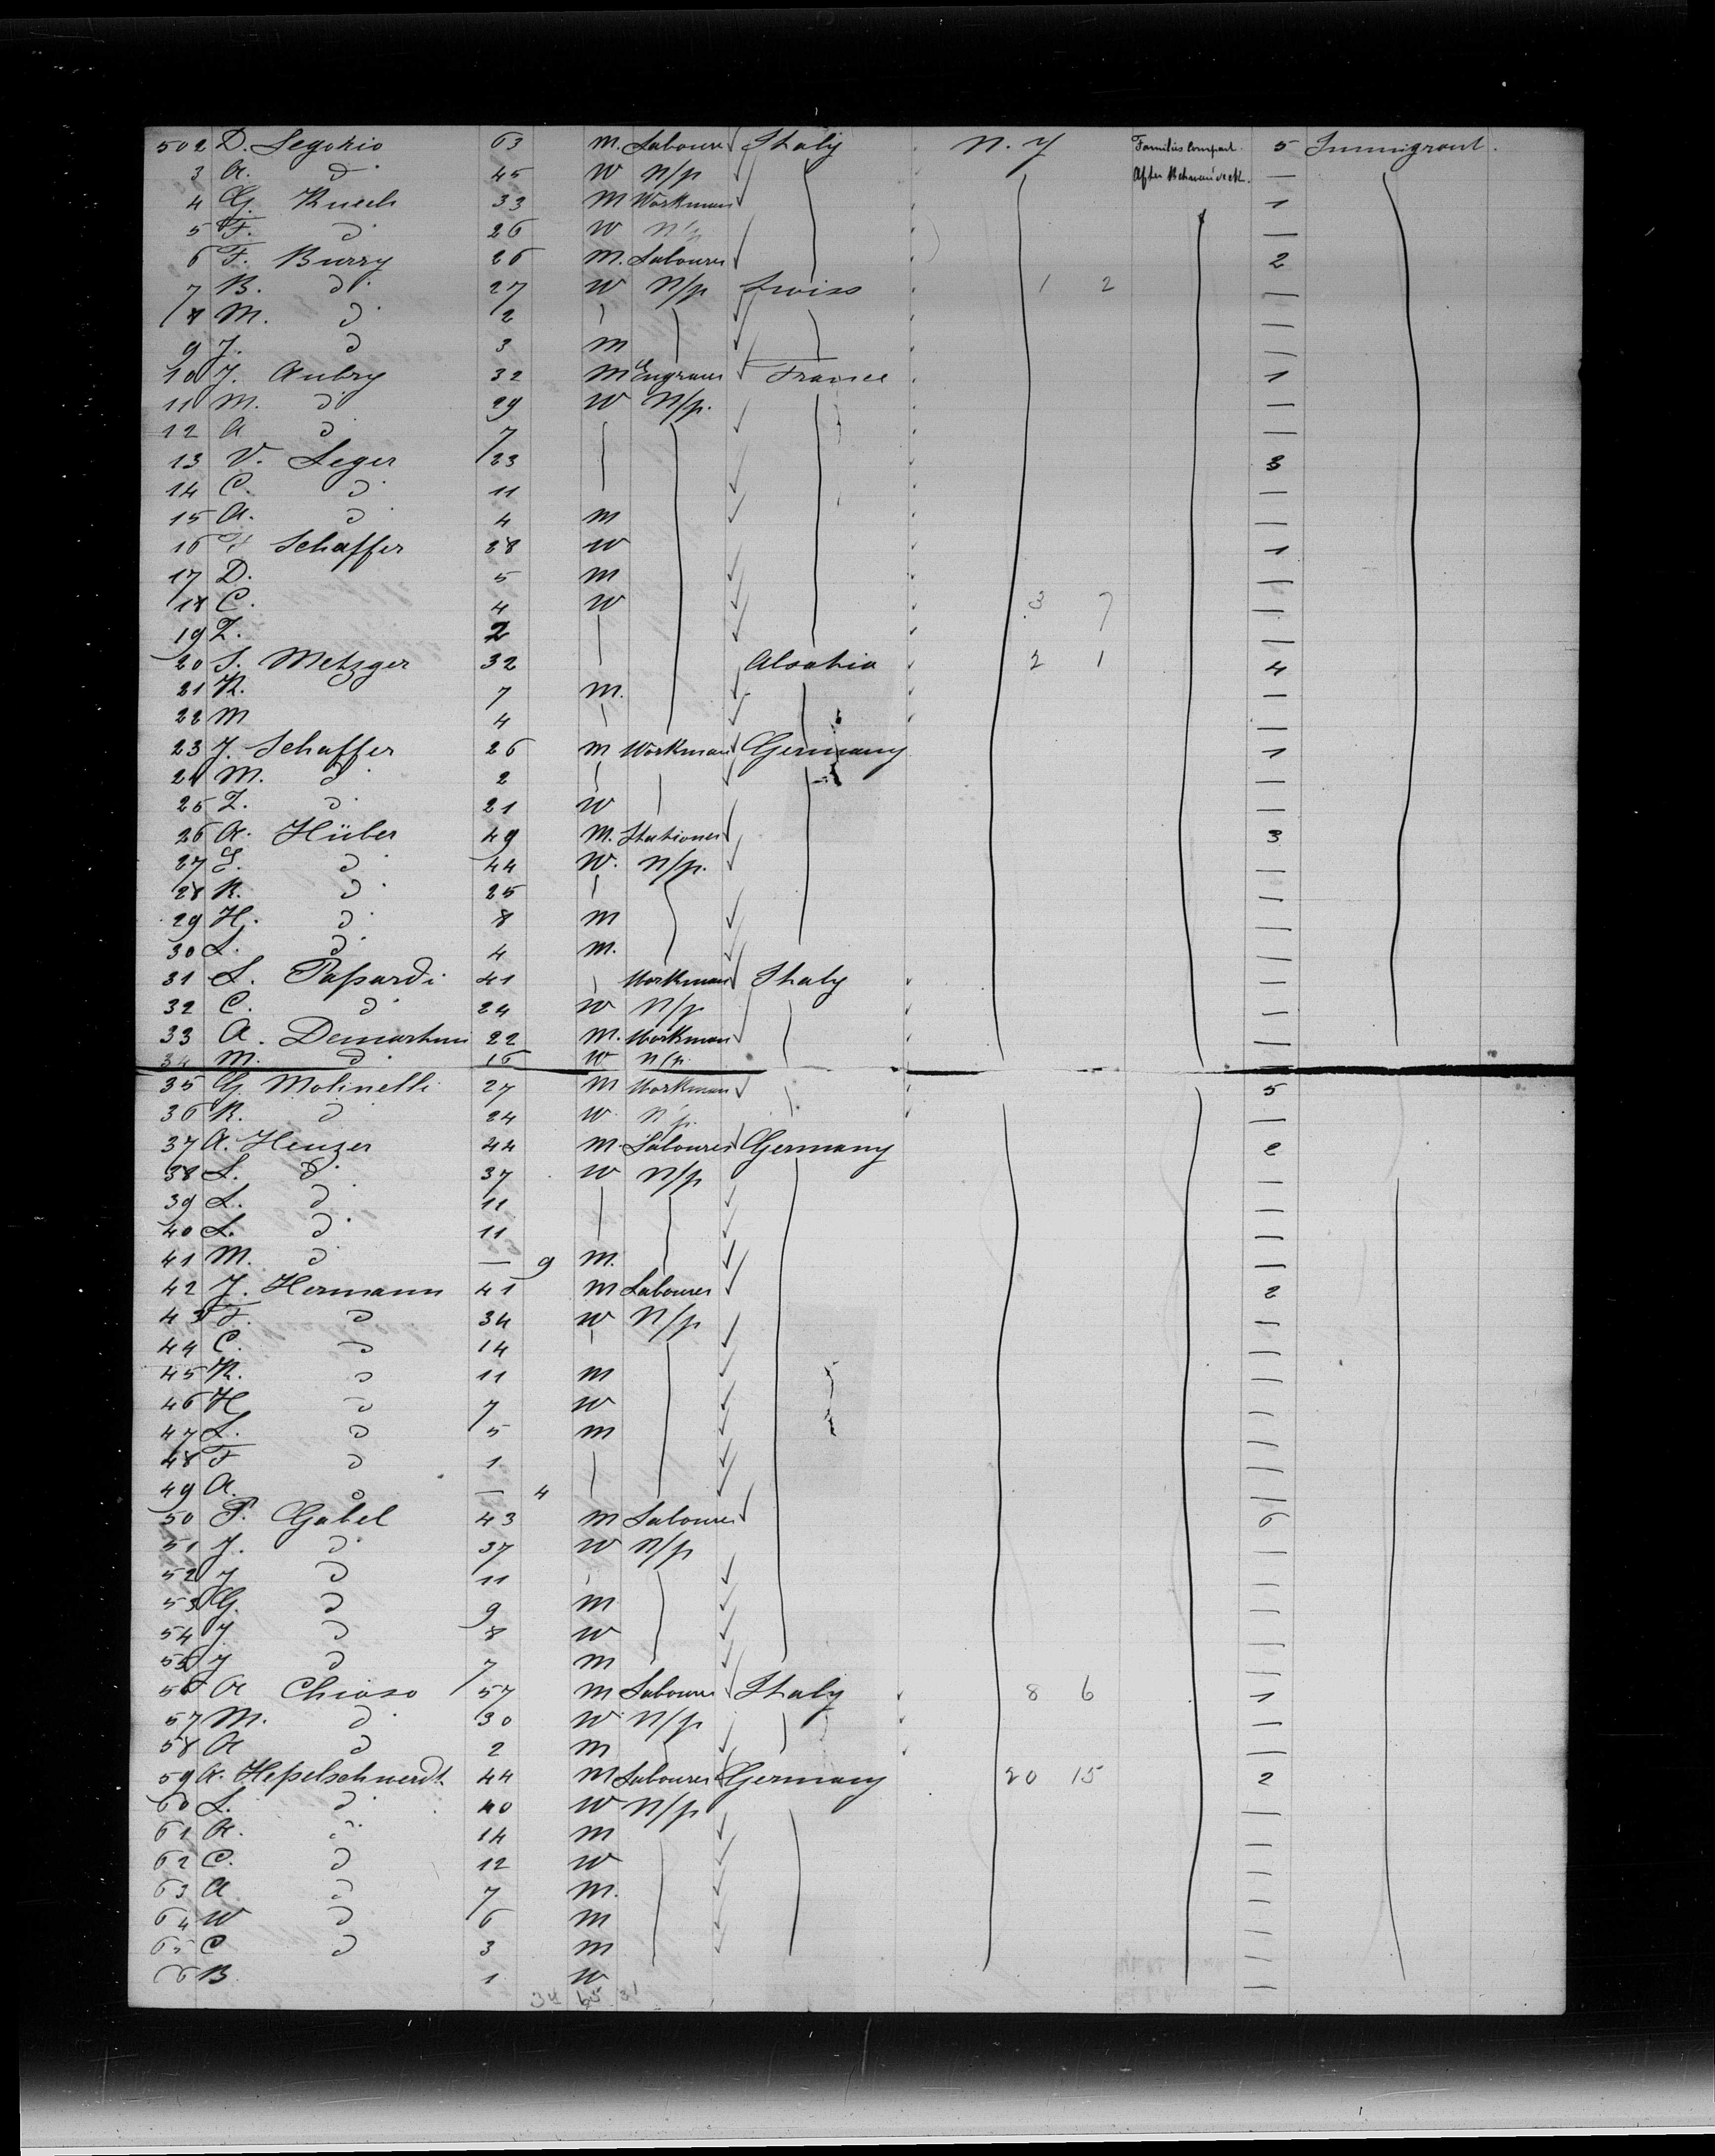 502 D. Segorio 63 m. Labourer Italy N. Y Families Compart. 5 Immigrant.
3 A. d. 45 W n/p After Between deck. —
4 G. Rusch 33 M Workman 1
5 F. d. 26 W n/p —
6 F. Burry 26 m. Labourer 2
7 B. d. 27 W N/p Swiss 1 2 —
8 M. d. 2 —
9 J. d 3 m —
10 J. Aubry 32 M Engraver France 1
11 M. d. 29 W N/p. —
12 A d. 7 —
13 V. Leger 23 3
14 C. d. 11 —
15 A. d. 4 m —
16 Schaffer 28 W 1
17 D. 5 m —
18 C. 4 W 3 7 —
19 Z. 2 —
20 S. Metzger 32 Alsatia 2 1 4
21 K. 7 m. —
22 M 4 —
23 J. Schaffer 26 m Workman Germany 1
24 M. d. 2 —
25 Z. d. 21 W —
26 A. Hüber 49 M. Stationer 3
27 d. 44 W. N/p. —
28 R. d. 25 —
29 H. d. 8 m —
30 L. d. 4 m. —
31 L. Papardi 41 Workman Italy —
32 C. d. 24 W N/p —
33 A. Demartini 22 M. Workman —
34 M. d. 16 W n/p. —
35 G. Molinelli 27 M Workman 5
36 R. d 24 W. n/p. —
37 A. Henzer 44 M. Labourer Germany 2
38 L. d. 37 W N/p —
39 L. d. 11 —
40 L. d. 11 —
41 M. d — 9 m. —
42 J. Hermann 41 M Labourer 2
43 F. d 34 W N/p —
44 C. d 14 —
45 K. d 11 m —
46 H d 7 W —
47 L. d 5 m —
48 F d 1 —
49 A. d — 4 —
50 P. Gabel 43 M Labourer 6
51 J. d. 37 W N/p —
52 J d 11 —
53 G. d 9 m —
54 J d 8 W —
55 J d 7 m —
56 A Chioso 57 M Labourer Italy 8 6 1
57 M. d. 30 W N/p —
58 A d 2 m —
59 A. Hepelschwerdt 44 M Labourer Germany 20 15 2
60 L. d. 40 W N/p —
61 K. d. 14 m —
62 C. d 12 W —
63 A d 7 M. —
64 W d 6 m —
65 C d 3 m —
66 B. 1 W —